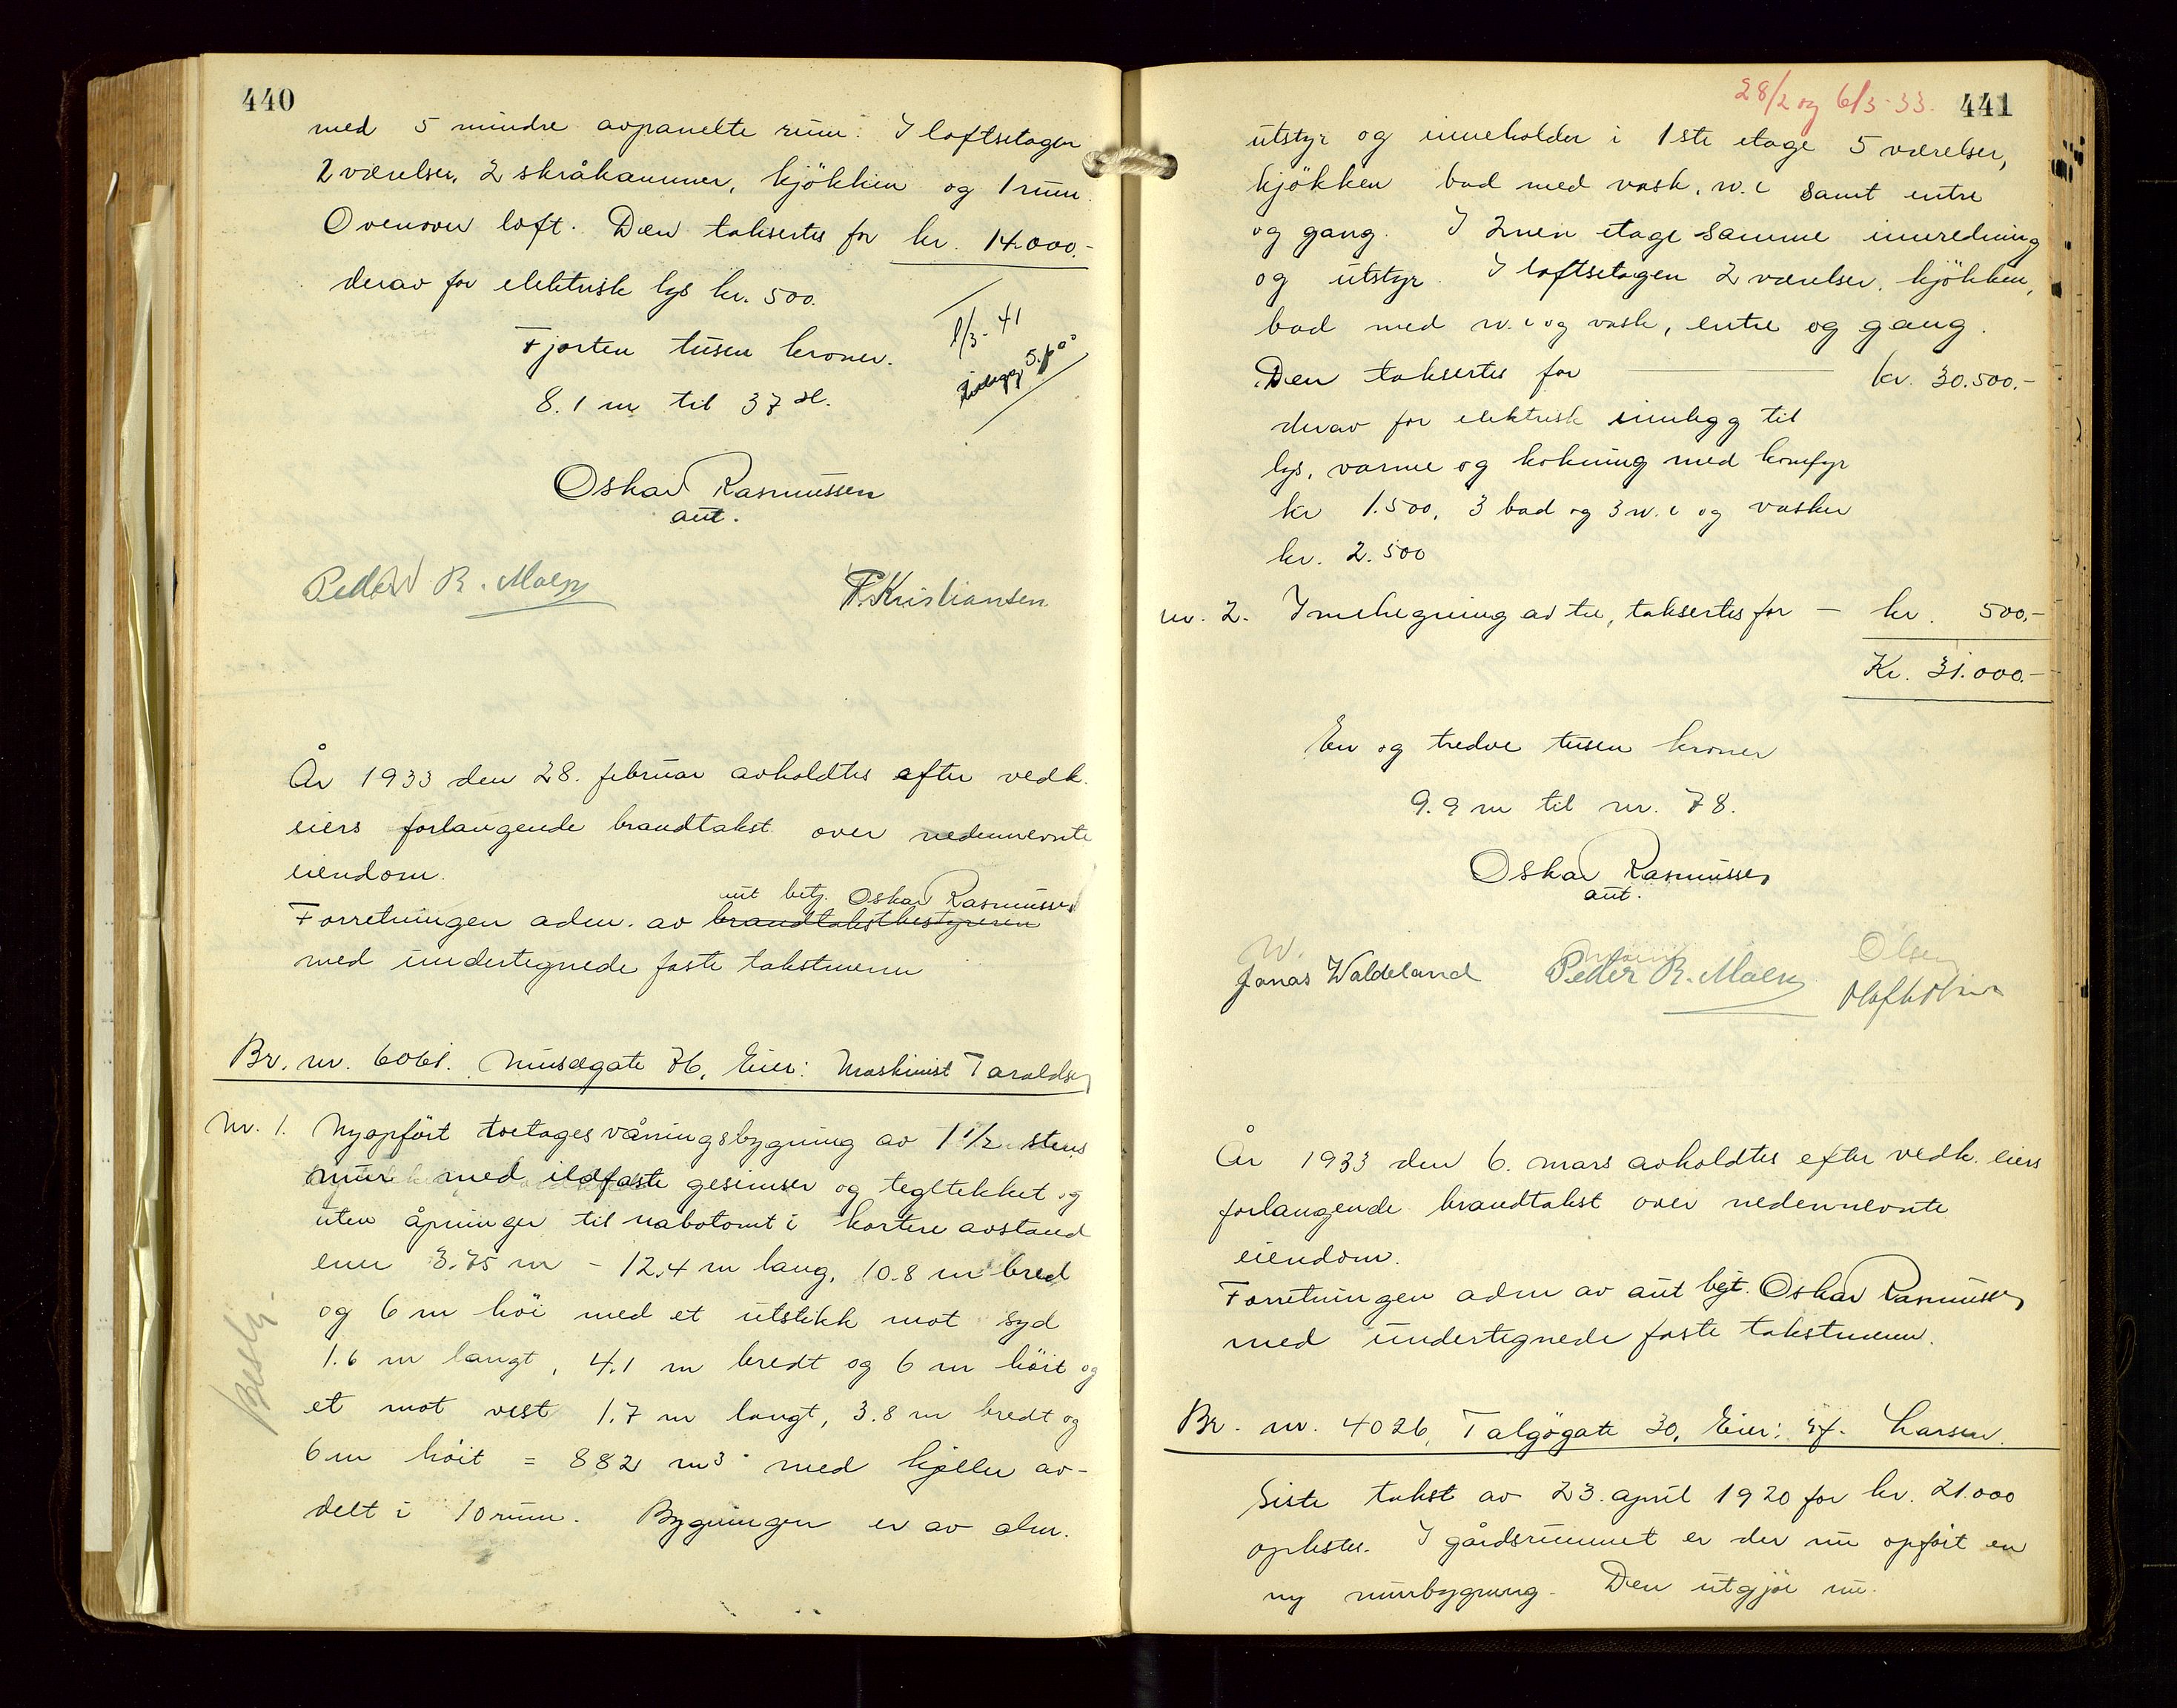 440
med 5 mindre avpanelte rum. I loftsetagen
2 værelser, 2 skråkammer, kjökken og 1 rum.
Ovenover loft. Den taksertes for kr. 14.000.-
derav for elektrisk lys kr. 500.
Fjorten tusen kroner.
8.1 m til 37 
1/3-41
Oskar Rasmussen
aut.
Peder R. Moen
Kristiansen
År 1933 den 28. februar avholdtes efter vedk.
eiers forlangende brandtakst over nedennevnte
eiendom.
aut betj. Oskar Rasmussen
Forretningen adm. av brandtakstbestyreren
med undertegnede faste takstmenn
Br. nr. 6061. Muségate 76, Eier: Maskinist Taraldsen
Nr. 1. Nyopfört toetages våningsbygning av 1 1/2 stens
mur med ildfaste gesimser og tegltekket og
uten åpninger til nabotomt i kortere avstand
enn 3.75 m - 12.4 m lang, 10.8 m bred
og 6 m höi med et utstikk mot syd
1.6 m langt, 4.1 m bredt og 6 m höit og
et mot vest 1.7 m langt, 3.8 m bredt og
6 m höit = 882 m3 med kjeller av-
delt i 10 rum. Bygningen er av alm.
28/2 og 6/3-33. 441
utstyr og inneholder i 1ste etage 5 værelser,
kjökken bad med vask, w.c samt entre
og gang. I 2nen etage samme innredning
og utstyr. I loftsetagen 2 værelser, kjökken,
bad med w.c og vask, entre og gang.
Den taksertes for kr. 30.500.-
derav for elektrisk innlegg til
lys, varme og kokning med komfyr
kr 1.500, 3 bad og 3 w.c og vasker
kr. 2.500
nr. 2. Innhegning av tre, taksertes for - kr. 500,-
Kr. 31.000.-
En og tredve tusen kroner
9.9 m til nr. 78.
Oskar Rasmussen
aut.
W. Olsen
Jonas Waldeland Peder R. Moen
År 1933 den 6. mars avholdtes efter vedk. eiers
forlangende brandtakst over nedennevnte
eiendom.
Forretningen adm av aut bejt. Oskar Rasmussen
med undertegnede faste takstmenn.
Br. nr. 4026, Talgögate 30, Eier: Larsen.
Siste takst av 23. april 1920 for kr. 21.000
oplestes. I gårdsrummet er der nu opfört en
ny murbygning. Den utgjör nu.